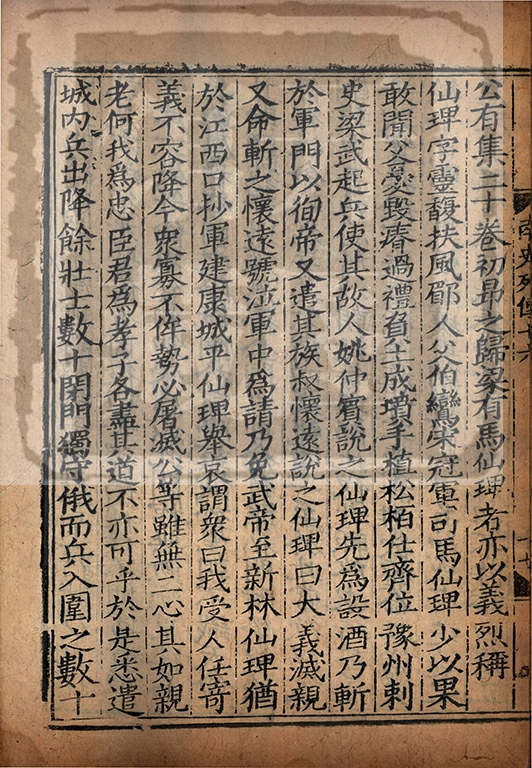 公有集二十卷初昂之歸梁有馬仙琕者亦以義烈稱
仙琕字靈馥扶風郿人父伯鸞宋冠軍司馬仙琕少以果
敢聞父憂毀瘠過禮負土成墳手植松栢仕齊位豫州刺
史梁武起兵使其故人姚仲賓說之仙琕先爲設酒乃斬
於軍門以徇帝又遣其族叔懷遠說之仙琕曰大義滅親
又命斬之懷遠號泣軍中爲請乃免武帝至新林仙琕猶
於江西口抄軍建康城平仙琕舉哀謂衆曰我受人任寄
義不容降今衆寡不侔勢必屠滅公等雖無二心其如親
老何我爲忠臣君爲孝子各盡其道不亦可乎於是悉遣
城内兵出降餘壯士數十閉門獨守俄而兵入圍之數十